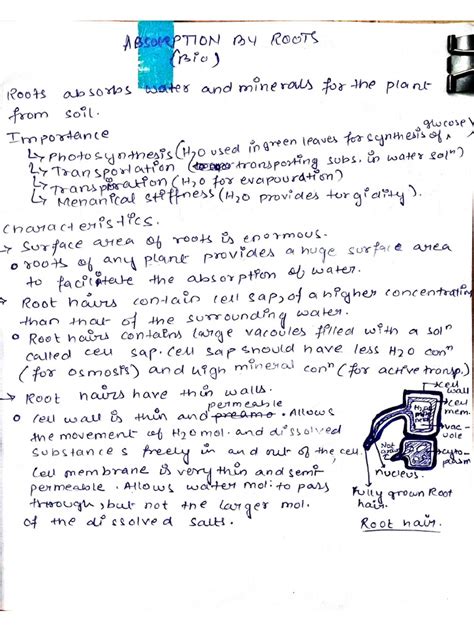 ABSORPTION BY ROOTS
(Bio)
Roots absorbs water and minerals for the plant
from soil.
Importance
↳ Photosynthesis (H₂O used in green leaves for synthesis of glucose)
↳ Transportation (transporting subs. in water solⁿ)
↳ Transpiration (H₂O for evapouration)
↳ Menanical stiffness (H₂O provides turgidity).
Characteristics.
→ Surface area of roots is enormous.
o roots of any plant provides a huge surface area
to facilitate the absorption of water.
→ Root hairs contain cell sap, of a higher concentrating
than that of the surrounding water.
o Root hairs contains large vacoules filled with a solⁿ
called cell sap. Cell sap should have less H₂O conⁿ
(for osmosis) and high mineral conⁿ (for active transp.)
→ Root hairs have thin walls.
o Cell wall is thin and permeable. Allows
the movement of H₂O mol. and dissolved
substances freely in and out of the cell.
Cell membrane is very thin and semi-
permeable. Allows water mol: to pass
through, but not the larger mol.
of the dissolved salts.
cell
wall
cell
mem.
vac-
uole
cyto-
plasm
nucleus.
Fully grown Root
hair.
Root hair.